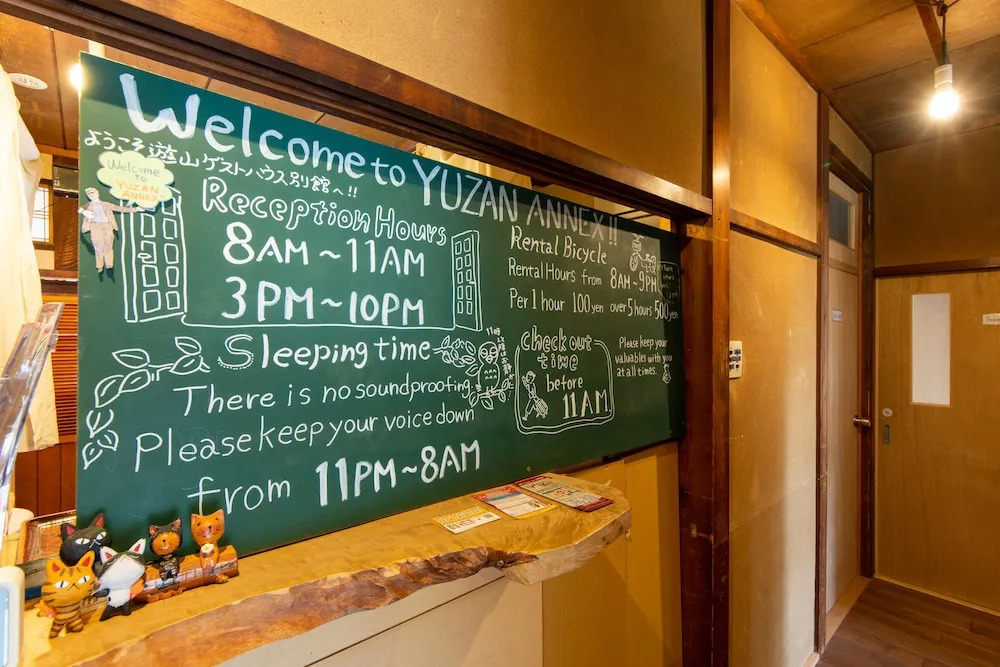 Welcome to YUZAN ANNEX!!
ようこそ遊山ゲストハウス別館へ!!
Welcome
to
YUZAN
ANNEX!
Reception Hours
8AM~11AM
3PM~10PM
Sleeping time
There is no soundproofing
Please keep your voice down
from 11PM~8AM
Rental Bicycle
Rental Hours from 8AM~9PM
Per 1 hour 100yen over 5 hours 500yen
Check out
time
before
11AM
Please keep your
valuables with you
at all times.